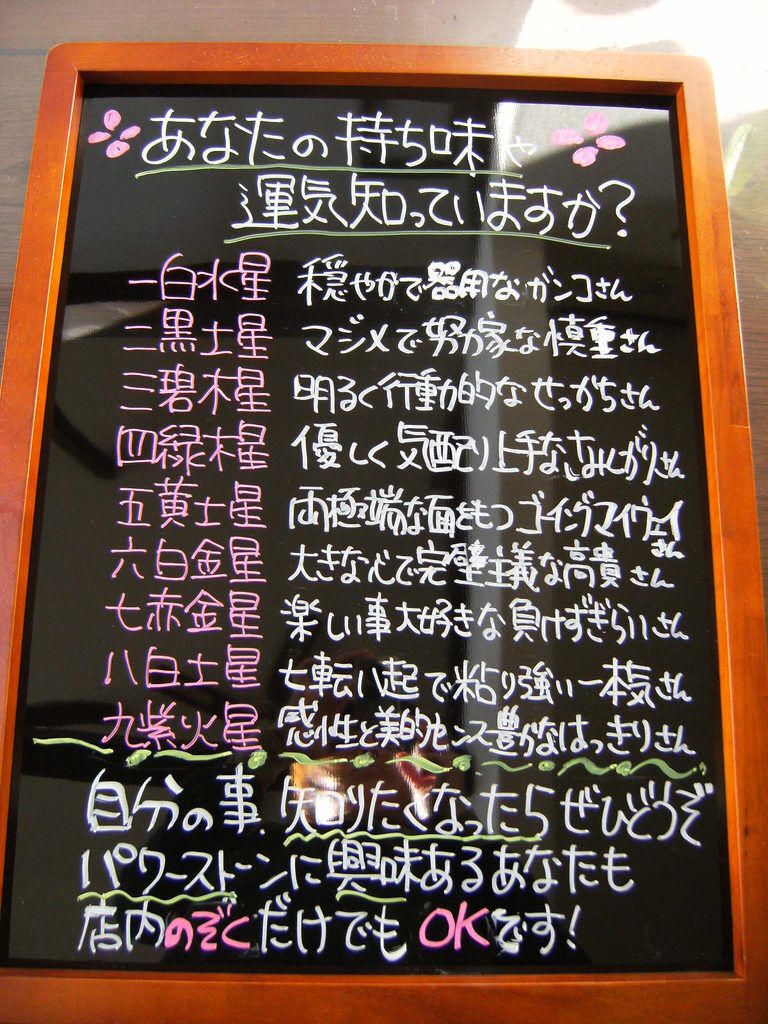 あなたの持ち味や
運気知っていますか?
一白水星 穏やかで器用なガンコさん
二黒土星 マジメで努力家な慎重さん
三碧木星 明るく行動的なせっかちさん
四緑木星 優しく気配り上手なさみしがりさん
五黄土星 両極端な面をもつゴーイングマイウェイさん
六白金星 大きな心で完璧主義な高貴さん
七赤金星 楽しい事大好きな負けずぎらいさん
八白土星 七転い起で粘り強い一本気さん
九紫火星 感性と美的センス豊かなはっきりさん
自分の事、知りたくなったらぜひどうぞ
パワーストーンに興味あるあなたも
店内のぞくだけでもOKです!